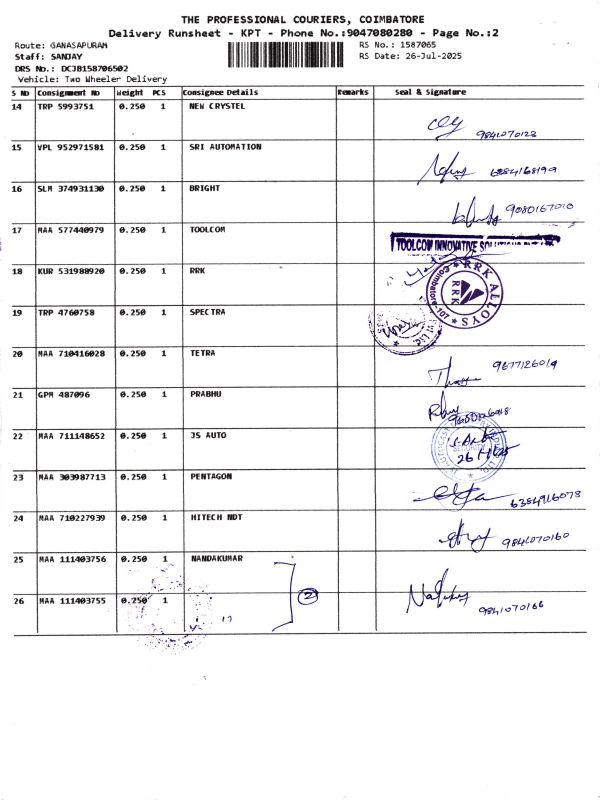 THE PROFESSIONAL COURIERS, COIMBATORE
Delivery Runsheet - KPT - Phone No.:9047080280 - Page No.:2
Route: GANASAPURAM
RS No.: 1587065
Staff: SANJAY
RS Date: 26-Jul-2025
DRS No.: DCJB158706502
Vehicle: Two Wheeler Delivery
S No Consignment No Weight PCS Consignee Details Remarks Seal & Signature
14 TRP 5993751 0.250 1 NEW CRYSTEL
9841070123
15 VPL 952971581 0.250 1 SRI AUTOMATION
6384168199
16 SLM 374931130 0.250 1 BRIGHT
9080167010
17 MAA 577440979 0.250 1 TOOLCOM
TOOLCOM INNOVATIVE
18 KUR 531988920 0.250 1 RRK
RRK ALLOYS
RRK
Coimbatore-107
19 TRP 4760758 0.250 1 SPECTRA
20 MAA 710416028 0.250 1 TETRA
9677126019
21 GPM 487096 0.250 1 PRABHU
22 MAA 711148652 0.250 1 JS AUTO
SECURITY
23 MAA 303987713 0.250 1 PENTAGON
6384916073
24 MAA 710227939 0.250 1 HITECH NDT
9841070160
25 MAA 111403756 0.250 1 NANDAKUMAR
2
26 MAA 111403755 0.250 1
9841070166